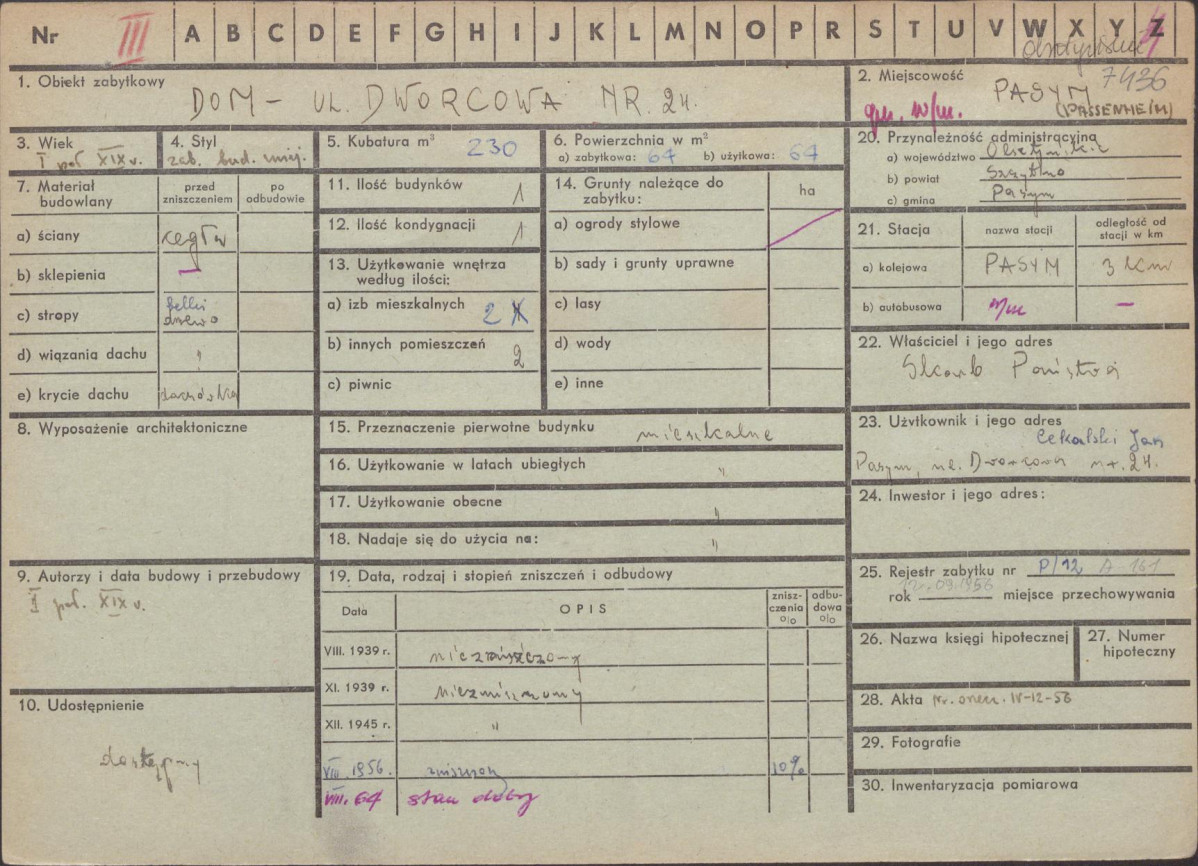 Nr III A B C D E F G H I J K L M N O P R S T U V W X Y Z
1. Obiekt zabytkowy
DOM - UL. DWORCOWA NR. 24.
2. Miejscowość 7436
PASYM
gm. w/m. (PASSENHEIM)
3. Wiek
I poł XIX w.
4. Styl
zab. bud. miej.
5. Kubatura m³ 230
6. Powierzchnia w m²
a) zabytkowa: 64 b) użytkowa: 64
20. Przynależność administracyjna
a) województwo Olsztyńskie
b) powiat Szczytno
c) gmina Pasym
7. Materiał budowlany
przed zniszczeniem
po odbudowie
a) ściany cegła
b) sklepienia —
c) stropy belki
drewo
d) wiązania dachu "
e) krycie dachu dachówka
11. Ilość budynków 1
12. Ilość kondygnacji 1
13. Użytkowanie wnętrza według ilości:
a) izb mieszkalnych 2
b) innych pomieszczeń 2
c) piwnic
14. Grunty należące do zabytku:
ha
a) ogrody stylowe
b) sady i grunty uprawne
c) lasy
d) wody
e) inne
21. Stacja
nazwa stacji
odległość od stacji w km
a) kolejowa PASYM 3 km
b) autobusowa w/m —
22. Właściciel i jego adres
Skarb Państwa
8. Wyposażenie architektoniczne
15. Przeznaczenie pierwotne budynku mieszkalne
16. Użytkowanie w latach ubiegłych "
17. Użytkowanie obecne "
18. Nadaje się do użycia na: "
23. Użytkownik i jego adres
Cekalski Jan
Pasym, ul. Dworcowa nr. 24.
24. Inwestor i jego adres:
9. Autorzy i data budowy i przebudowy
I poł. XIX w.
19. Data, rodzaj i stopień zniszczeń i odbudowy
Data
OPIS
znisz-
czenia
o/o
odbu-
dowa
o/o
VIII. 1939 r. niezniszczony
XI. 1939 r. niezniszczony
XII. 1945 r. "
VIII 1956. zniszczony 10%
VIII. 64 stan dobry
25. Rejestr zabytku nr P/12 A 161
12.09.1956
rok miejsce przechowywania
26. Nazwa księgi hipotecznej
27. Numer hipoteczny
10. Udostępnienie
dostępny
28. Akta IV-12-56
29. Fotografie
30. Inwentaryzacja pomiarowa